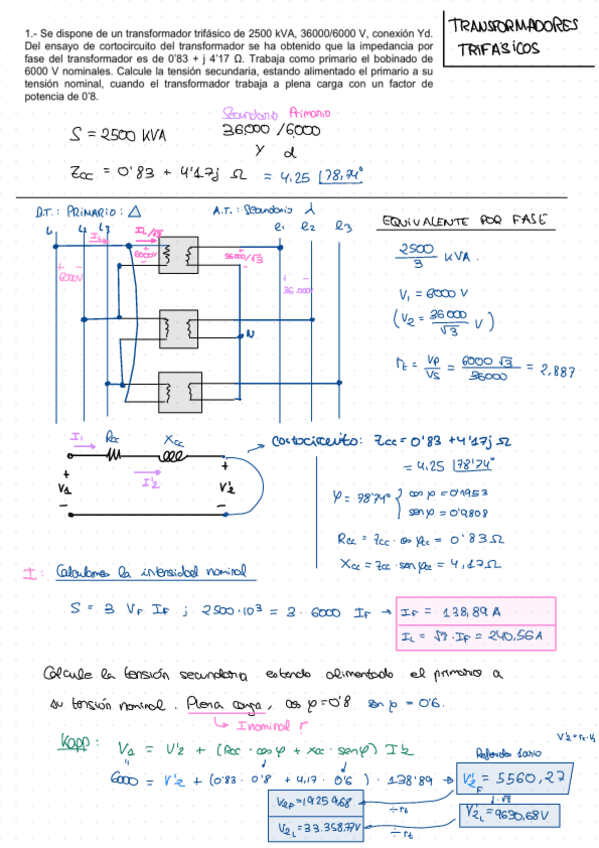 TRANSFORMADORES
TRIFÁSICOS
1.- Se dispone de un transformador trifásico de 2500 kVA, 36000/6000 V, conexión Yd.
Del ensayo de cortocircuito del transformador se ha obtenido que la impedancia por
fase del transformador es de 0'83 + j 4'17 Ω. Trabaja como primario el bobinado de
6000 V nominales. Calcule la tensión secundaria, estando alimentado el primario a su
tensión nominal, cuando el transformador trabaja a plena carga con un factor de
potencia de 0'8.
Secundario Primario
S = 2500 KVA 36000 / 6000
Y d
Zcc = 0'83 + 4'17j Ω = 4.25 |78,74°
B.T.: PRIMARIO: Δ A.T.: Secundario
L3 R1 R2 R3
EQUIVALENTE POR FASE
IL IL/√3
6000V 6000V 36000/√3
36.000
N
2500/3 KVA.
V1 = 6000 V
(V2 = 36000/√3 V)
rt = VP/VS = 6000 √3/36000 = 2,887
I1 Rcc Xcc
I'2
V1 V'2
+ +
- -
Cortocircuito: Zcc = 0'83 + 4'17j Ω
= 4.25 |78'74°
φ = 78'74° { cos φ = 0'1953
sen φ = 0'9808
Rcc = Zcc · cos φcc = 0'83 Ω
Xcc = Zcc · sen φcc = 4,17 Ω
I: Calculamos la intensidad nominal
S = 3 VF IF ; 2500·10³ = 3 · 6000 IF → IF = 138,89 A
IL = √3 · IF = 240,56 A
Calcule la tensión secundaria estando alimentado el primario a
su tensión nominal. Plena carga, cos φ = 0'8 sen φ = 0'6.
↳ I nominal
Kapp: V1 = V'2 + (Rcc · cos φ + Xcc · sen φ) I'2
6000 = V'2 + (0'83 · 0'8 + 4,17 · 0'6) · 138'89 → V'2F = 5560,27
Referido 1ario
· √3
V2F = 1925,968 ÷ rt
V'2L = 9630,68 V
V2L = 33.358,77 V ÷ rt